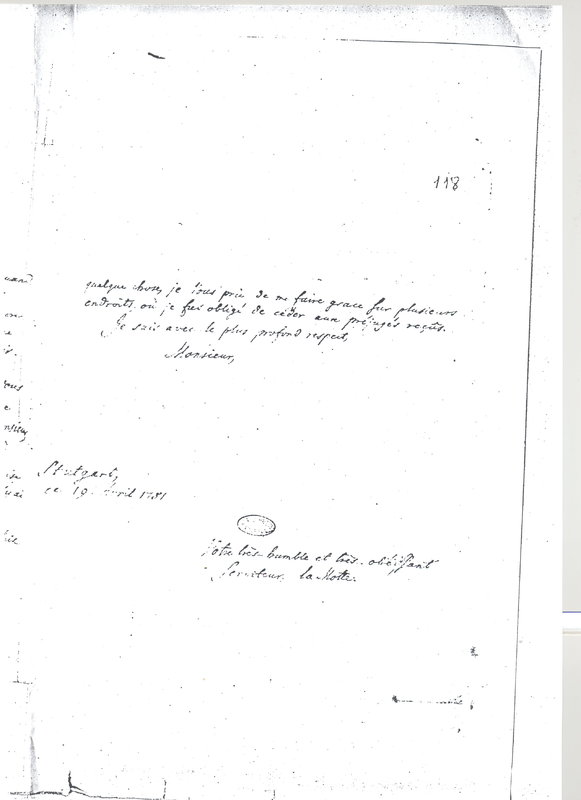 118
quelque chose, je vous prie de me faire grace sur plusieurs
endroits, où je fus obligé de céder aux préjugés reçus.
Je suis avec le plus profond respect,
Monsieur,
Stutgart,
ce 19. Avril 1781
Votre très-humble et très-obéissant
Serviteur la Motte.